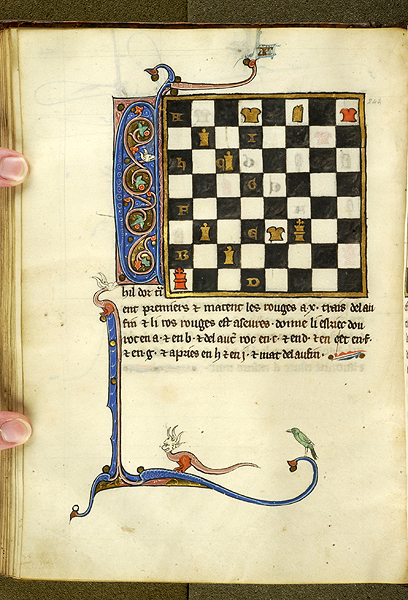 hil dor cū
ent premiers & matent les rouges a.x. trais del au
fin & li ros rouges est aseures. donne li eskiec dou
roc en a. & en b. & del autͥ roc en c. & en d. & en e et en f.
& en g. & apries en h & en j. & mat del aufin.
A
I
h
G
F
E
B
D